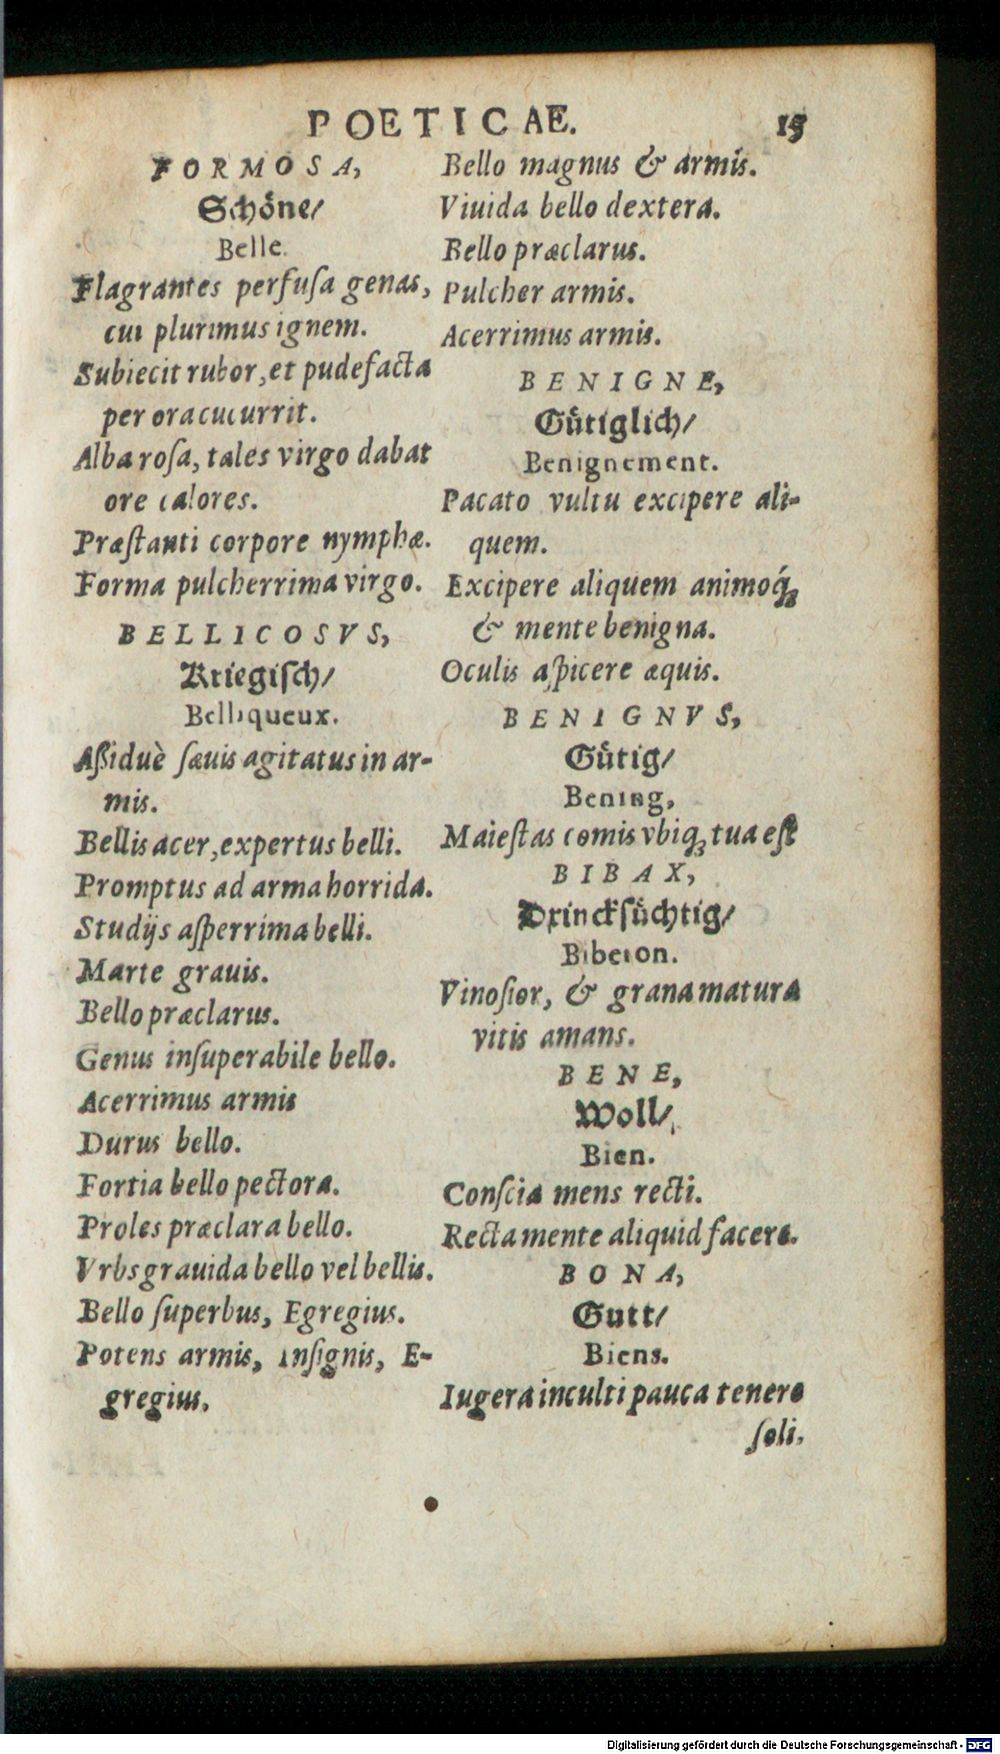 POETICAE. 15
FORMOSA,
Schöne/
Belle.
Flagrantes perfuſa genas,
cui plurimus ignem.
Subiecit rubor, et pudefacta
per ora cucurrit.
Alba roſa, tales virgo dabat
ore calores.
Præſtanti corpore nymphæ.
Forma pulcherrima virgo.
BELLICOSVS,
Kriegiſch/
Belliqueux.
Aßiduè ſæuis agitatus in ar-
mis.
Bellis acer, expertus belli.
Promptus ad arma horrida.
Studijs aſperrima belli.
Marte grauis.
Bello præclarus.
Genus inſuperabile bello.
Acerrimus armis
Durus bello.
Fortia bello pectora.
Proles præclara bello.
Vrbs grauida bello vel bellis.
Bello ſuperbus, Egregius.
Potens armis, inſignis, E-
gregius.
Bello magnus & armis.
Viuida bello dextera.
Bello præclarus.
Pulcher armis.
Acerrimus armis.
BENIGNE,
Gütiglich/
Benignement.
Pacato vultu excipere ali-
quem.
Excipere aliquem animoq́;
& mente benigna.
Oculis aſpicere æquis.
BENIGNVS,
Gütig/
Bening,
Maieſtas comis vbiq; tua eſt
BIBAX,
Drinckſüchtig/
Biberon.
Vinoſior, & grana matura
vitis amans.
BENE,
Woll/
Bien.
Conſcia mens recti.
Recta mente aliquid facere.
BONA,
Gutt/
Biens.
Iugera inculti pauca tenere
ſoli.
Digitalisierung gefördert durch die Deutsche Forschungsgemeinschaft - DFG